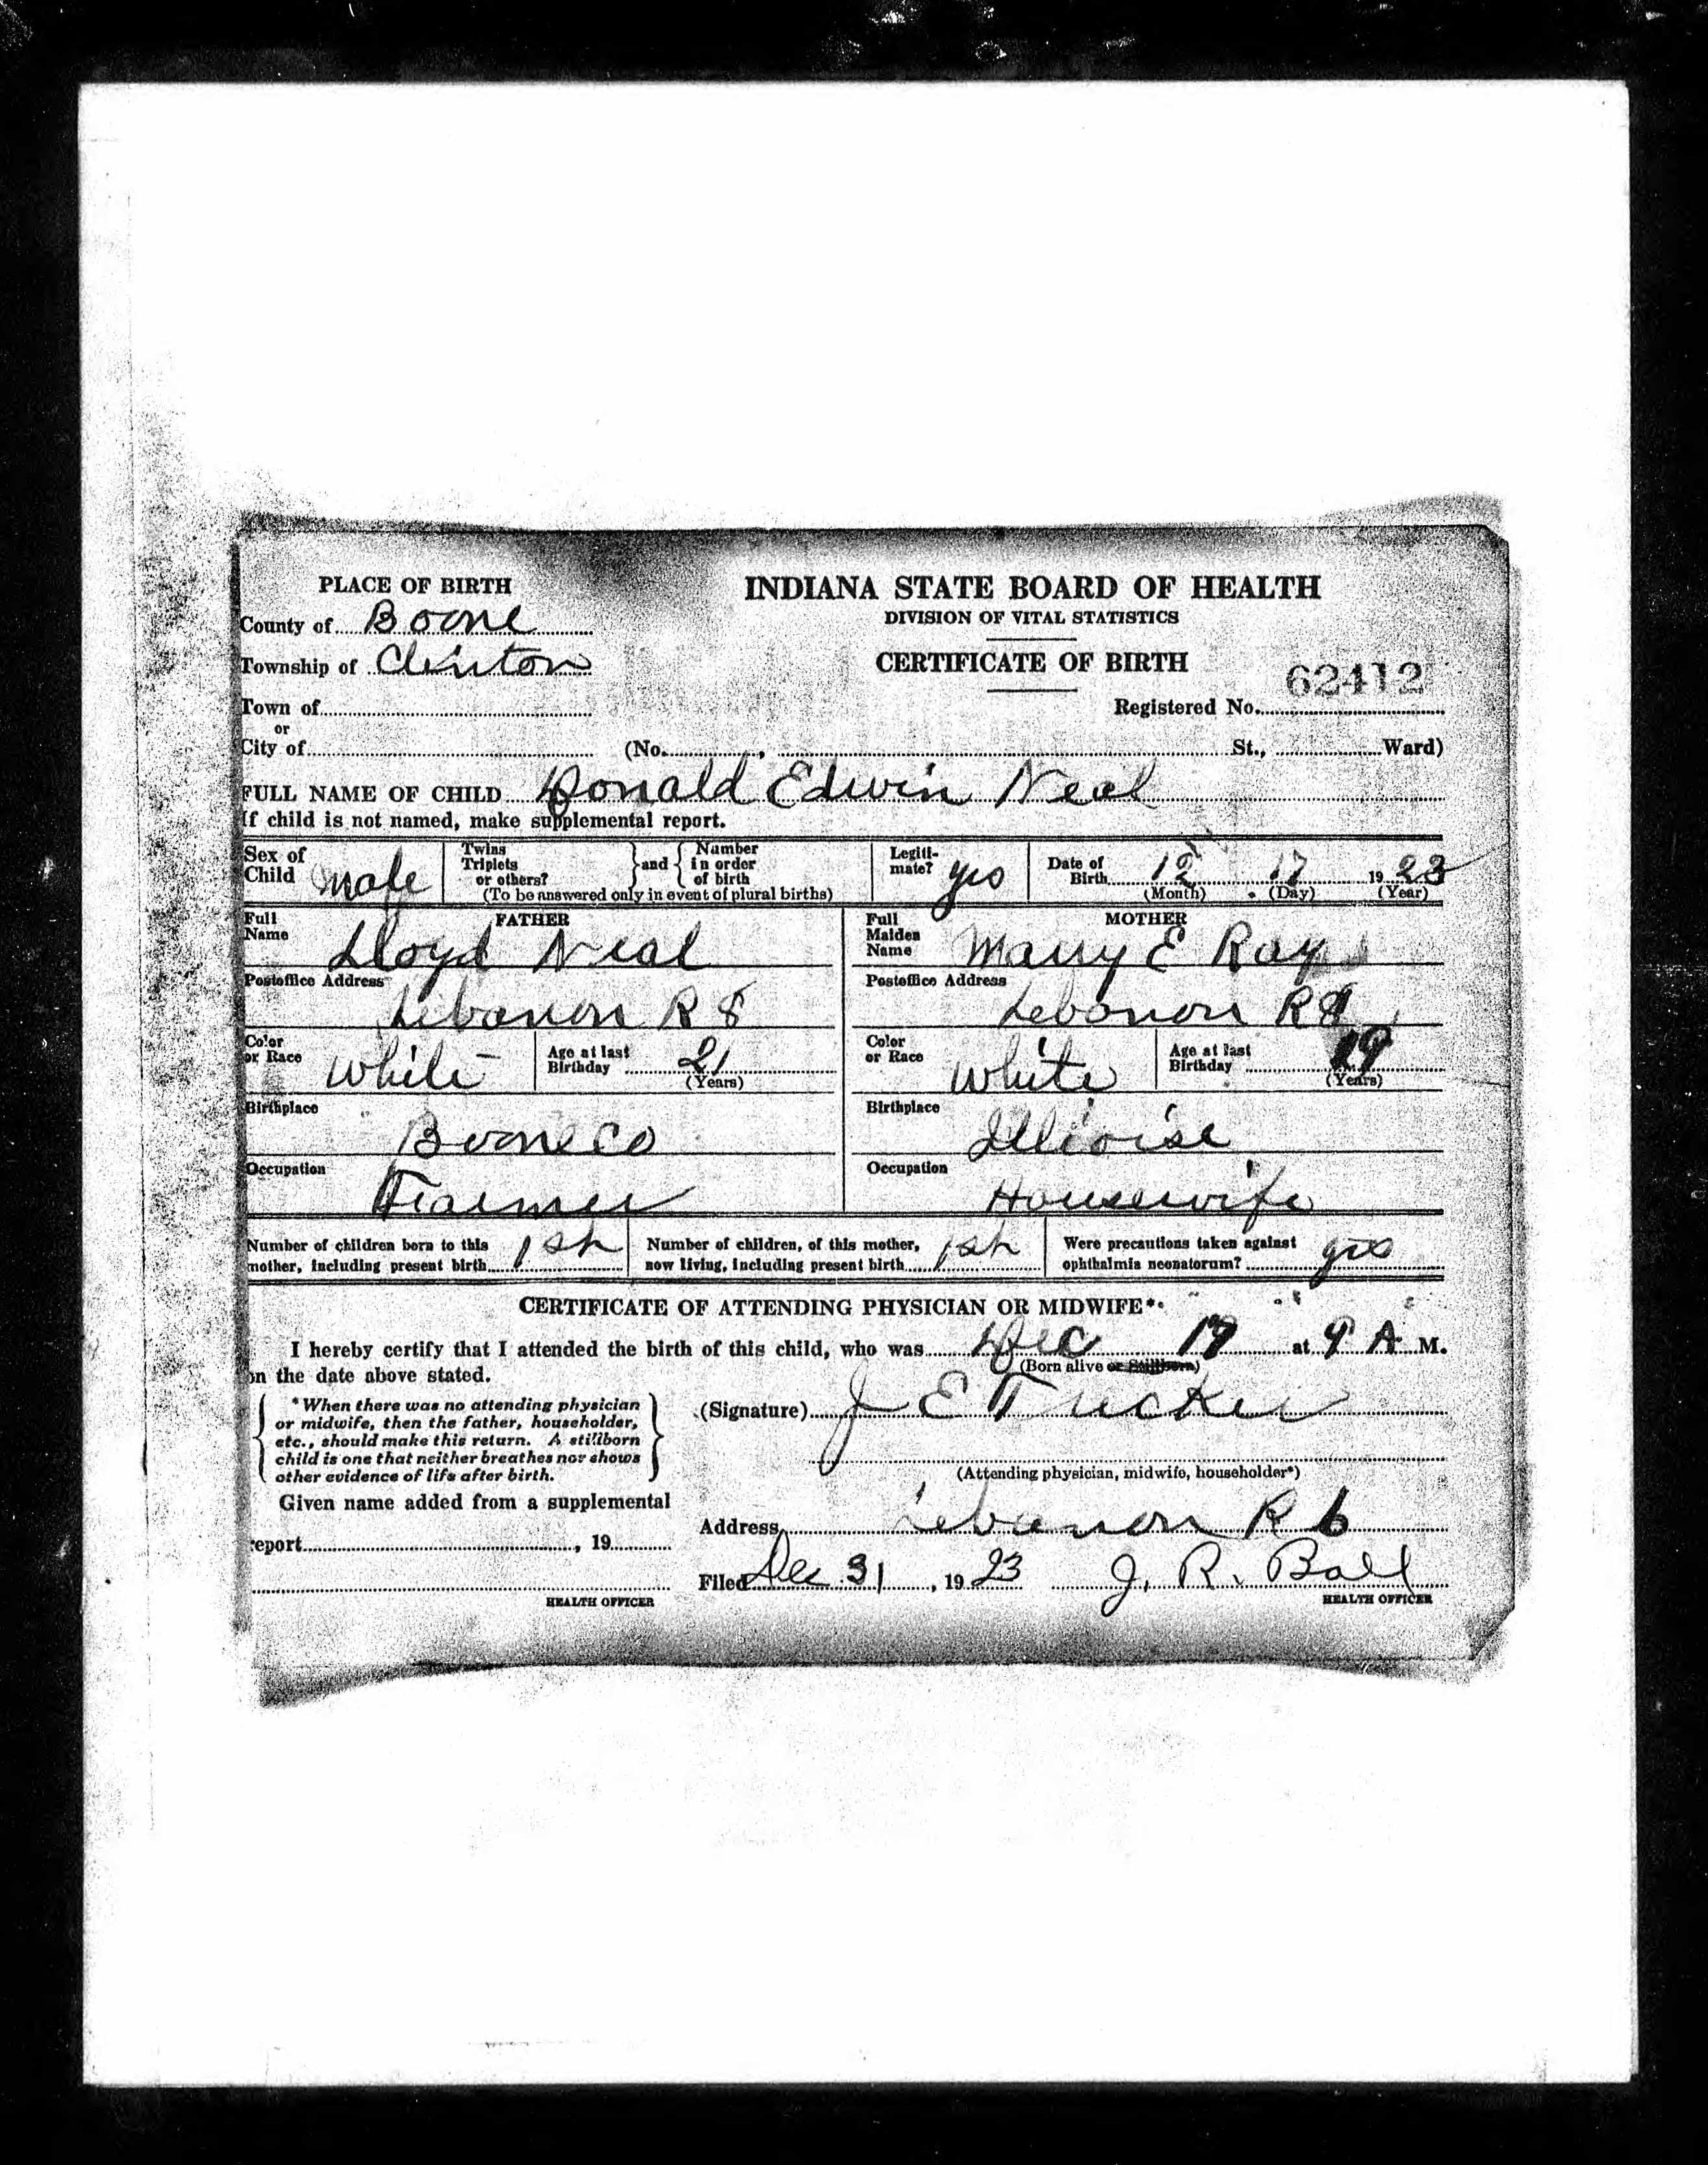 PLACE OF BIRTH
INDIANA STATE BOARD OF HEALTH
DIVISION OF VITAL STATISTICS
County of Boone
Township of Clinton
CERTIFICATE OF BIRTH
62412
Town of
Registered No.
or
City of (No. , St., Ward)
FULL NAME OF CHILD Donald Edwin Neal
If child is not named, make supplemental report.
Sex of Child Male
Twins Triplets or others? and Number in order of birth
(To be answered only in event of plural births)
Legiti-mate? yes
Date of Birth 12 17 1923
(Month) (Day) (Year)
FATHER
Full Name Lloyd Neal
MOTHER
Full Maiden Name Mary E Ray
Postoffice Address Lebanon R 8
Postoffice Address Lebanon R 8
Color or Race White
Age at last Birthday 21
(Years)
Color or Race White
Age at last Birthday 19
(Years)
Birthplace Boone Co
Birthplace Illioise
Occupation Farmer
Occupation Housewife
Number of children born to this mother, including present birth 1st
Number of children, of this mother, now living, including present birth 1st
Were precautions taken against ophthalmia neonatorum? yes
CERTIFICATE OF ATTENDING PHYSICIAN OR MIDWIFE*
I hereby certify that I attended the birth of this child, who was Dec 17 at 9 A M.
(Born alive or Stillborn)
on the date above stated.
*When there was no attending physician
or midwife, then the father, householder,
etc., should make this return. A stillborn
child is one that neither breathes nor shows
other evidence of life after birth.
(Signature) J E Tucker
(Attending physician, midwife, householder*)
Given name added from a supplemental
report , 19
Address Lebanon R 6
Filed Dec 31, 1923 J. R. Ball
HEALTH OFFICER
HEALTH OFFICER